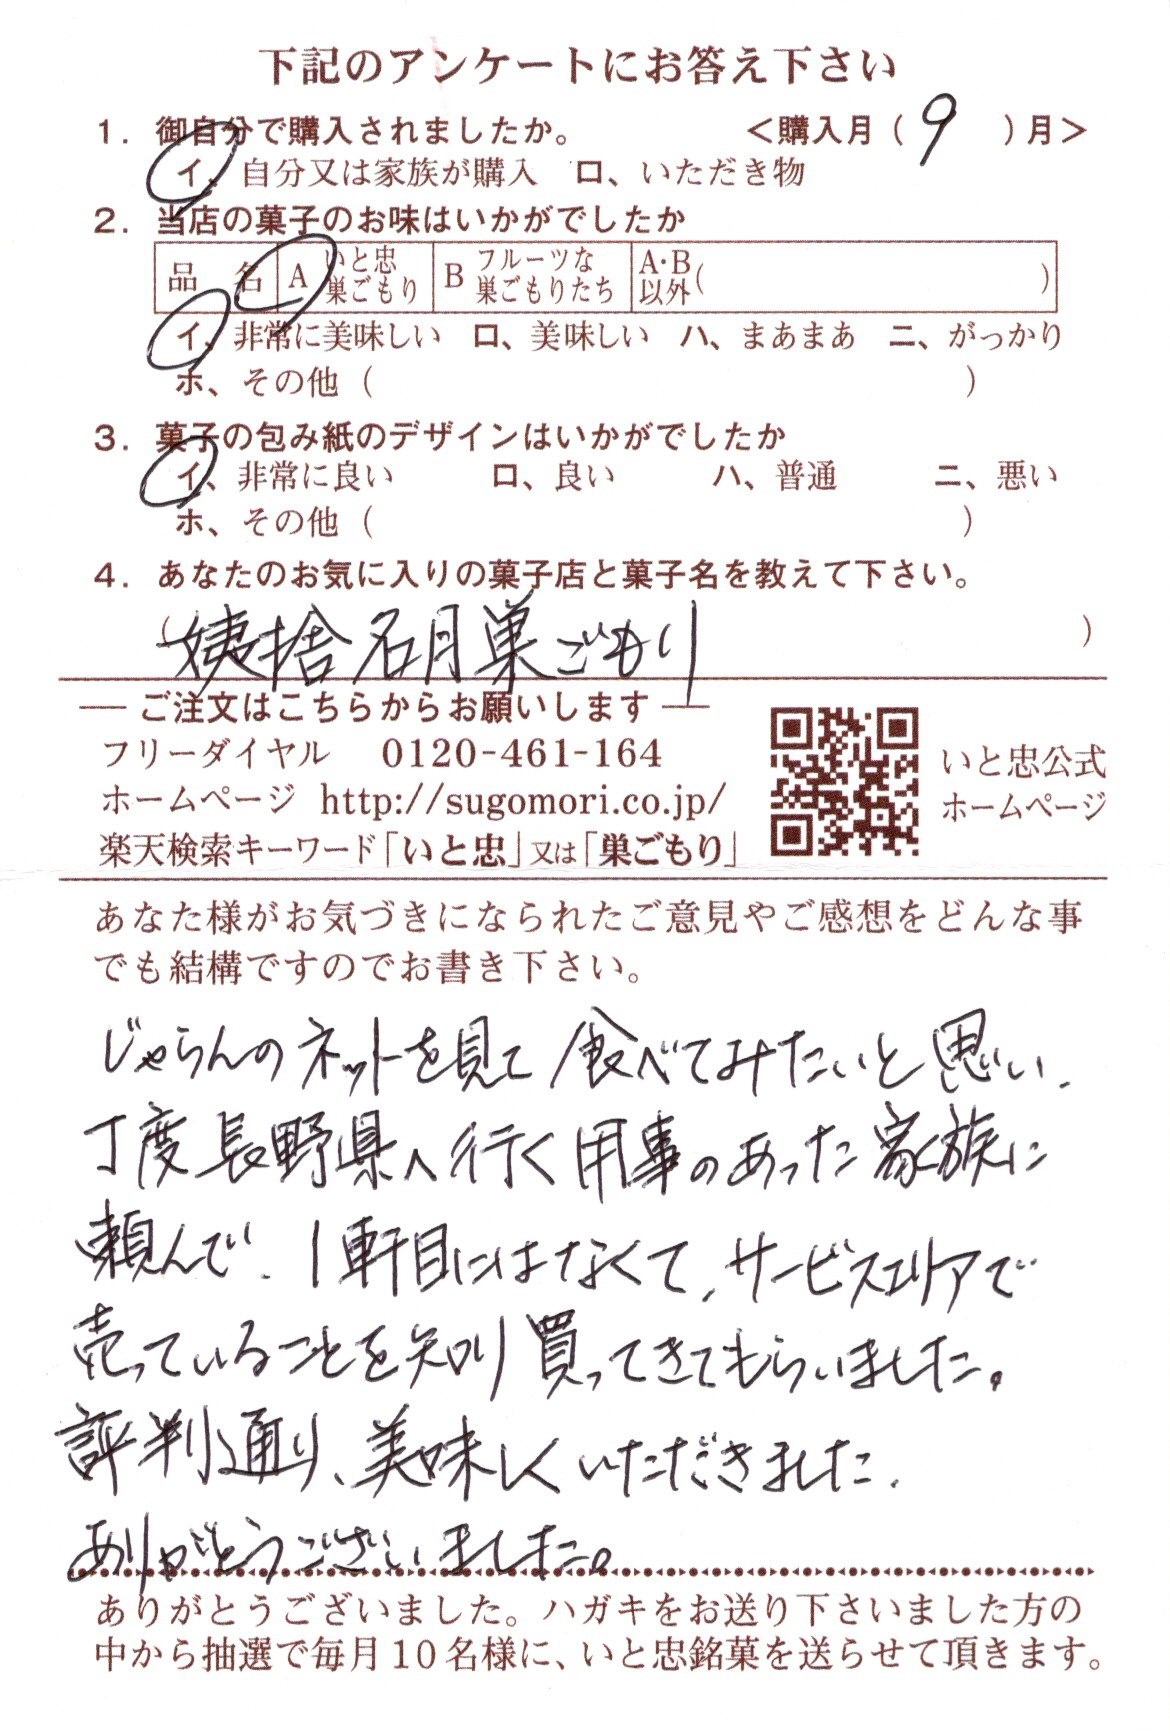 下記のアンケートにお答え下さい
1. 御自分で購入されましたか。 <購入月( 9 )月>
イ、自分又は家族が購入 ロ、いただき物
2. 当店の菓子のお味はいかがでしたか
品 名 A いと忠巣ごもり B フルーツな巣ごもりたち A・B以外( )
イ、非常に美味しい ロ、美味しい ハ、まあまあ ニ、がっかり
ホ、その他 ( )
3. 菓子の包み紙のデザインはいかがでしたか
イ、非常に良い ロ、良い ハ、普通 ニ、悪い
ホ、その他 ( )
4. あなたのお気に入りの菓子店と菓子名を教えて下さい。
( 姨捨名月巣ごもり )
― ご注文はこちらからお願いします ―
フリーダイヤル 0120-461-164
ホームページ http://sugomori.co.jp/
楽天検索キーワード「いと忠」又は「巣ごもり」
いと忠公式
ホームページ
あなた様がお気づきになられたご意見やご感想をどんな事
でも結構ですのでお書き下さい。
じゃらんのネットを見て食べてみたいと思い、
丁度長野県へ行く用事のあった家族に
頼んで、1軒目にはなくて、サービスエリアで
売っていることを知り買ってきてもらいました。
評判通り、美味しくいただきました。
ありがとうございました。
ありがとうございました。ハガキをお送り下さいました方の
中から抽選で毎月10名様に、いと忠銘菓を送らせて頂きます。